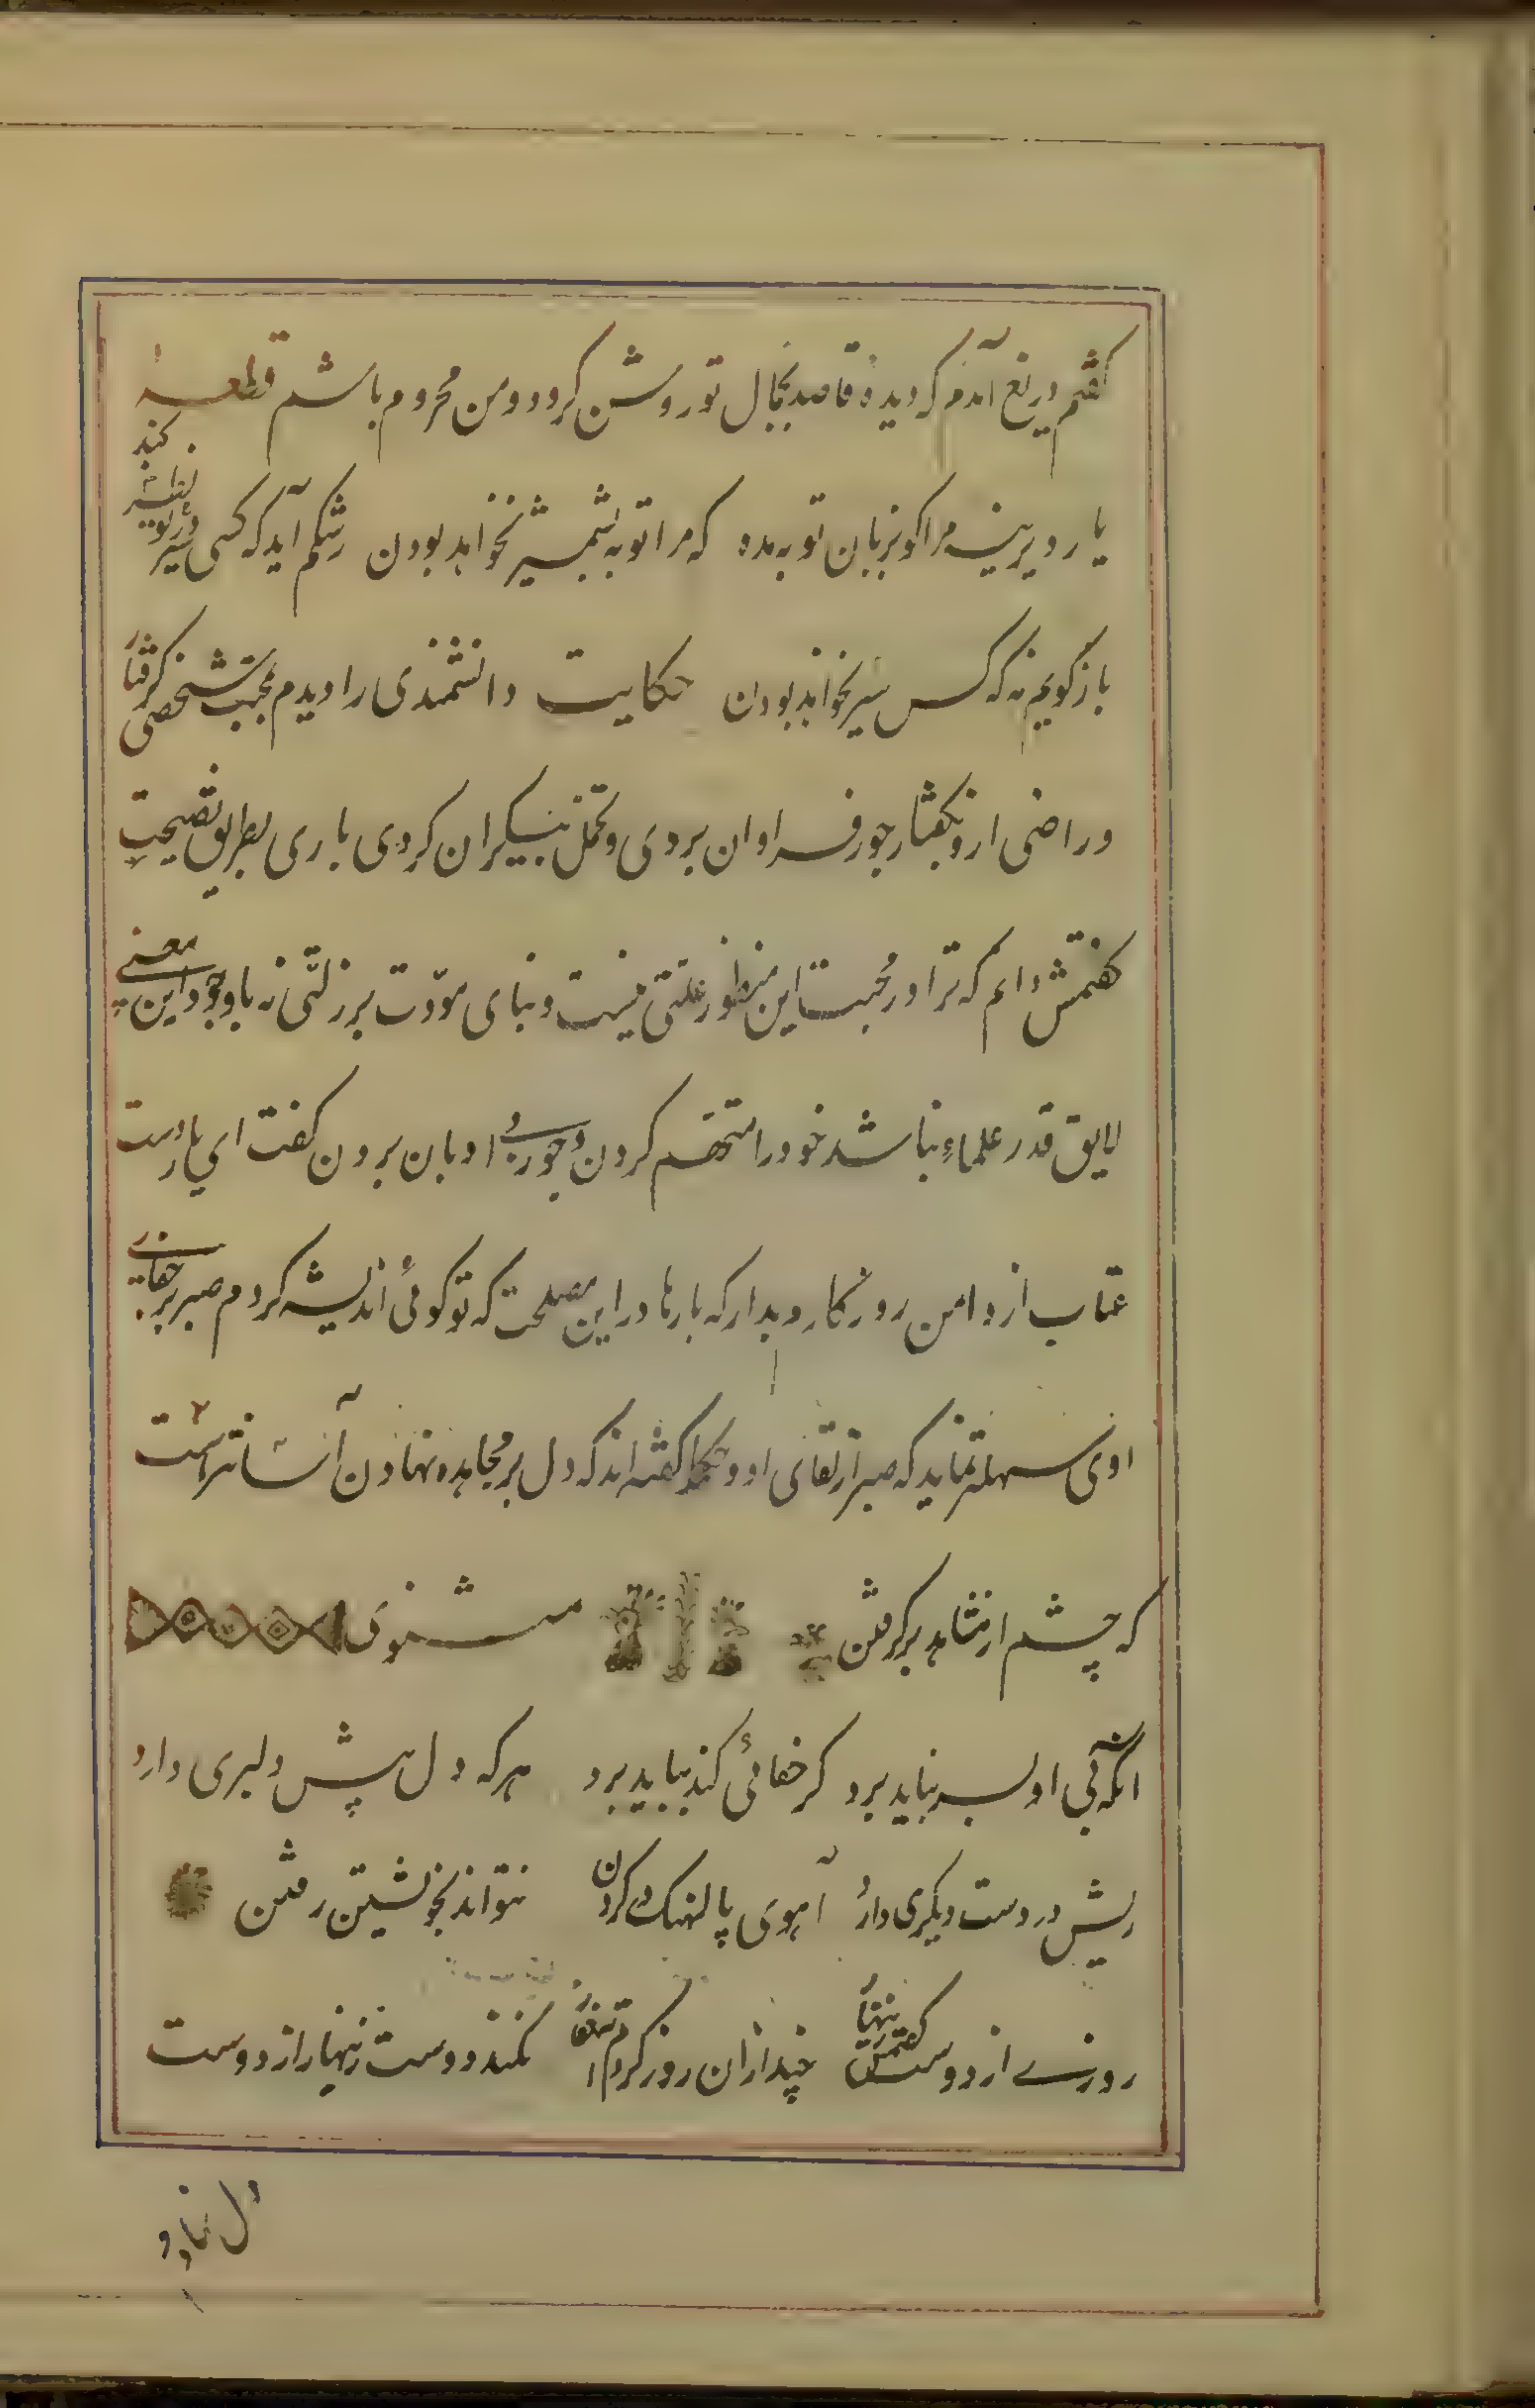 گفتم دریغ آمدم که دیده قاصد بجمال تو روشن گردد و من محروم باشم قطعه
یار دیرینه مرا کو بزبان توبه مده که مرا توبه بشمشیر نخواهد بودن رشکم آید که کسی سیر در تو نظر کند
باز گویم نه که کس سیر نخواهد بودن حکایت دانشمندی را دیدم بمحبت شخصی گرفتار
و راضی ازو بگفتار جور فراوان بردی و تحمل بیکران کردی باری بطریق نصیحت
گفتمش دانم که ترا در محبت این منظور علتی نیست و بنای مودت بر زلتی نه با وجود این معنی
لایق قدر علماء نباشد خود را متهم کردن و جور بی ادبان بردن گفت ای یار دست
عتاب از دامن روزگارم بدار که بارها در این مصلحت که تو گوئی اندیشه کردم صبر بر جفای
اوی سهلتر نماید که صبر از لقای او و حکما گفته اند که دل بر مجاهده نهادن آسانتر است
که چشم از مشاهده برگرفتن مثنوی
انکه بی او بسر نباید برد گر جفائی کند بباید برد هر که دل پیش دلبری دارد
ریش در دست دیگری دارد آهوی پالهنک در گردن نتواند بخویشتن رفتن
روزی از دوست گفتمش زنهار چند ازان روز کردم استغفار نکند دوست زینهار از دوست
دل نهادم